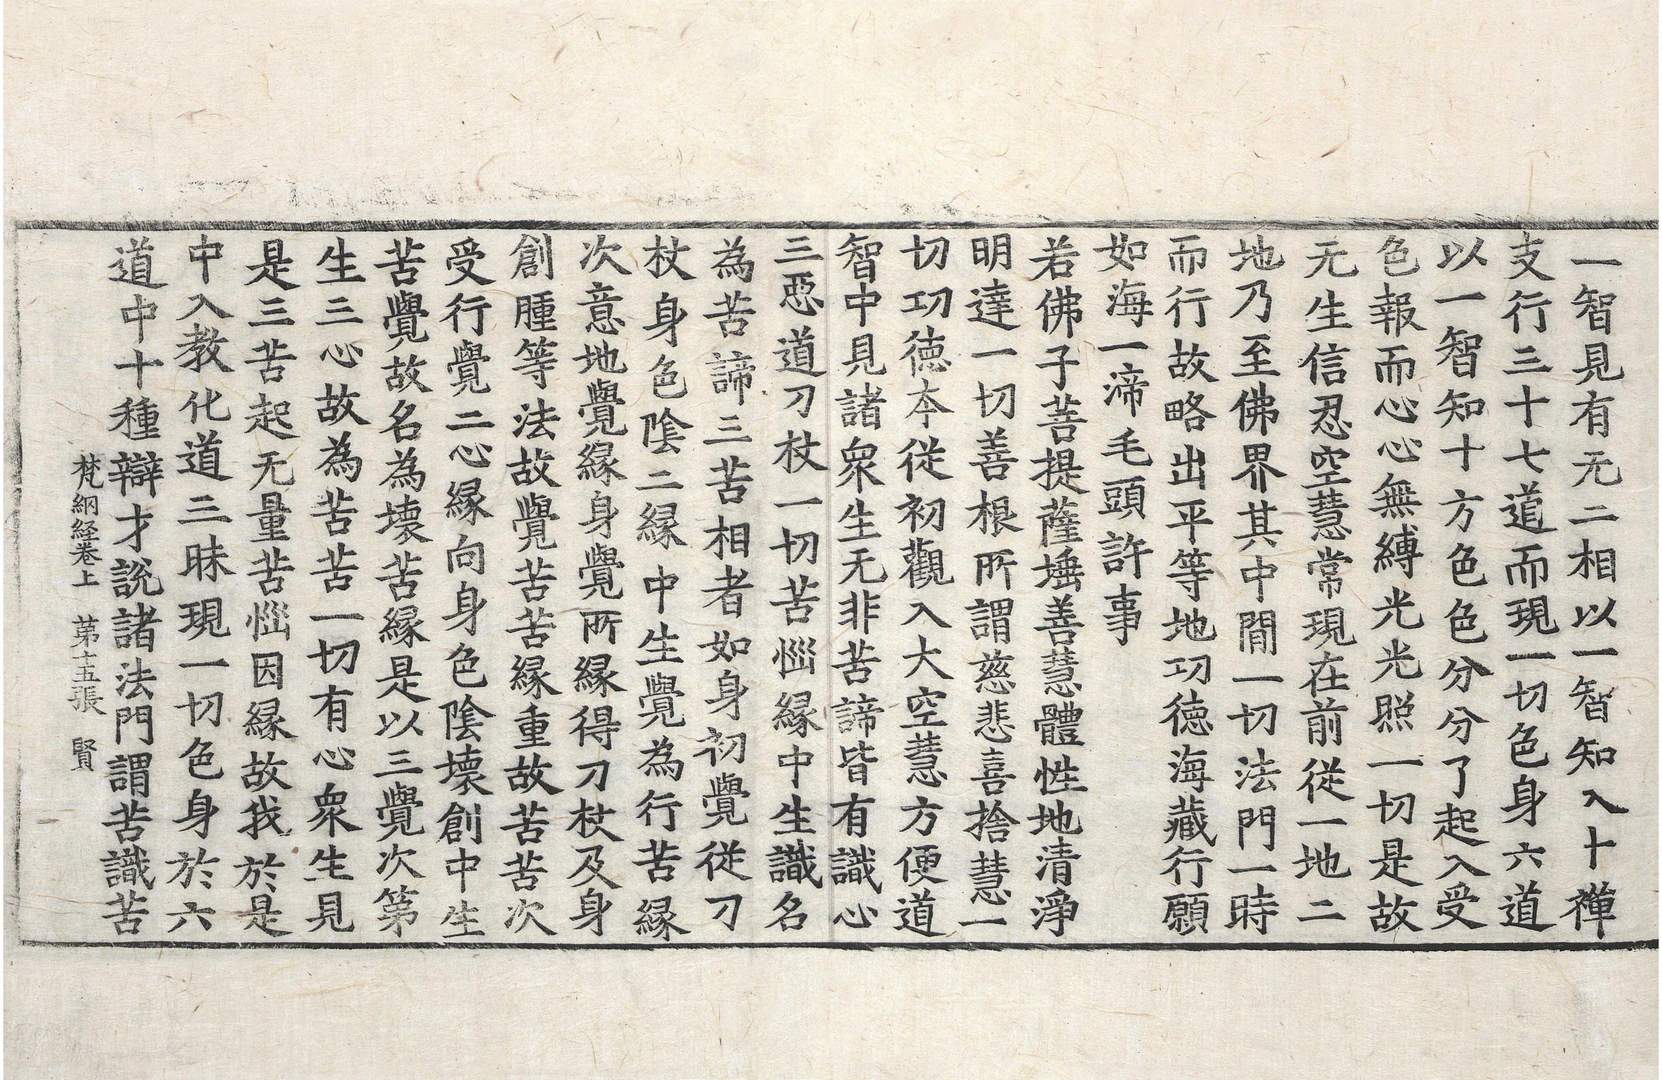 一智見有无二相以一智知入十禪
支行三十七道而現一切色身六道
以一智知十方色色分分了起入受
色報而心心無縛光光照一切是故
无生信忍空慧常現在前從一地二
地乃至佛界其中間一切法門一時
而行故略出平等地功德海藏行願
如海一渧毛頭許事
若佛子菩提薩埵善慧體性地清淨
明達一切善根所謂慈悲喜捨慧一
切功德本從初觀入大空慧方便道
智中見諸衆生无非苦諦皆有識心
三惡道刀杖一切苦惱緣中生識名
為苦諦三苦相者如身初覺從刀
杖身色陰二緣中生覺為行苦緣
次意地覺緣身覺所緣得刀杖及身
創腫等法故覺苦苦緣重故苦苦次
受行覺二心緣向身色陰壞創中生
苦覺故名為壞苦緣是以三覺次第
生三心故為苦苦苦一切有心衆生見
是三苦起无量苦惱因緣故我於是
中入教化道三昧現一切色身於六
道中十種辯才說諸法門謂苦識苦
梵網経卷上　第十五張　賢